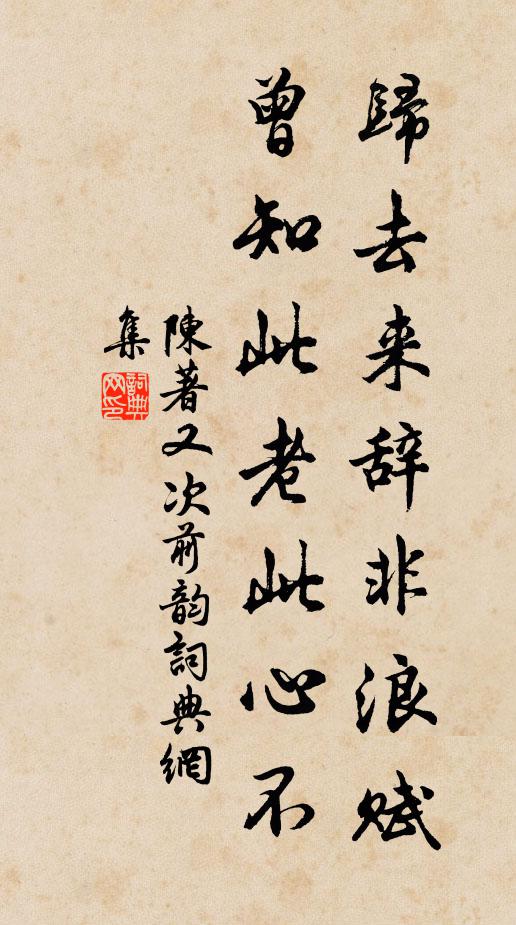 歸去来辞非浪赋
曾知此老此心不
陳著又次前韵詞典網
集
詞典网印